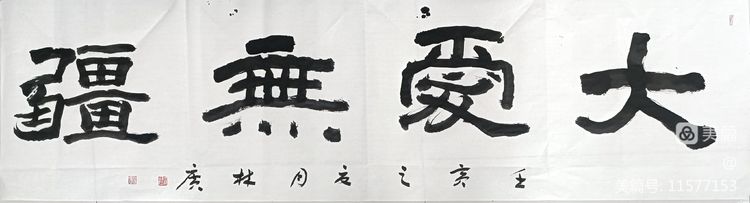 大愛無疆
壬亥之夏月林广
美篇
@
美篇号: 11577153